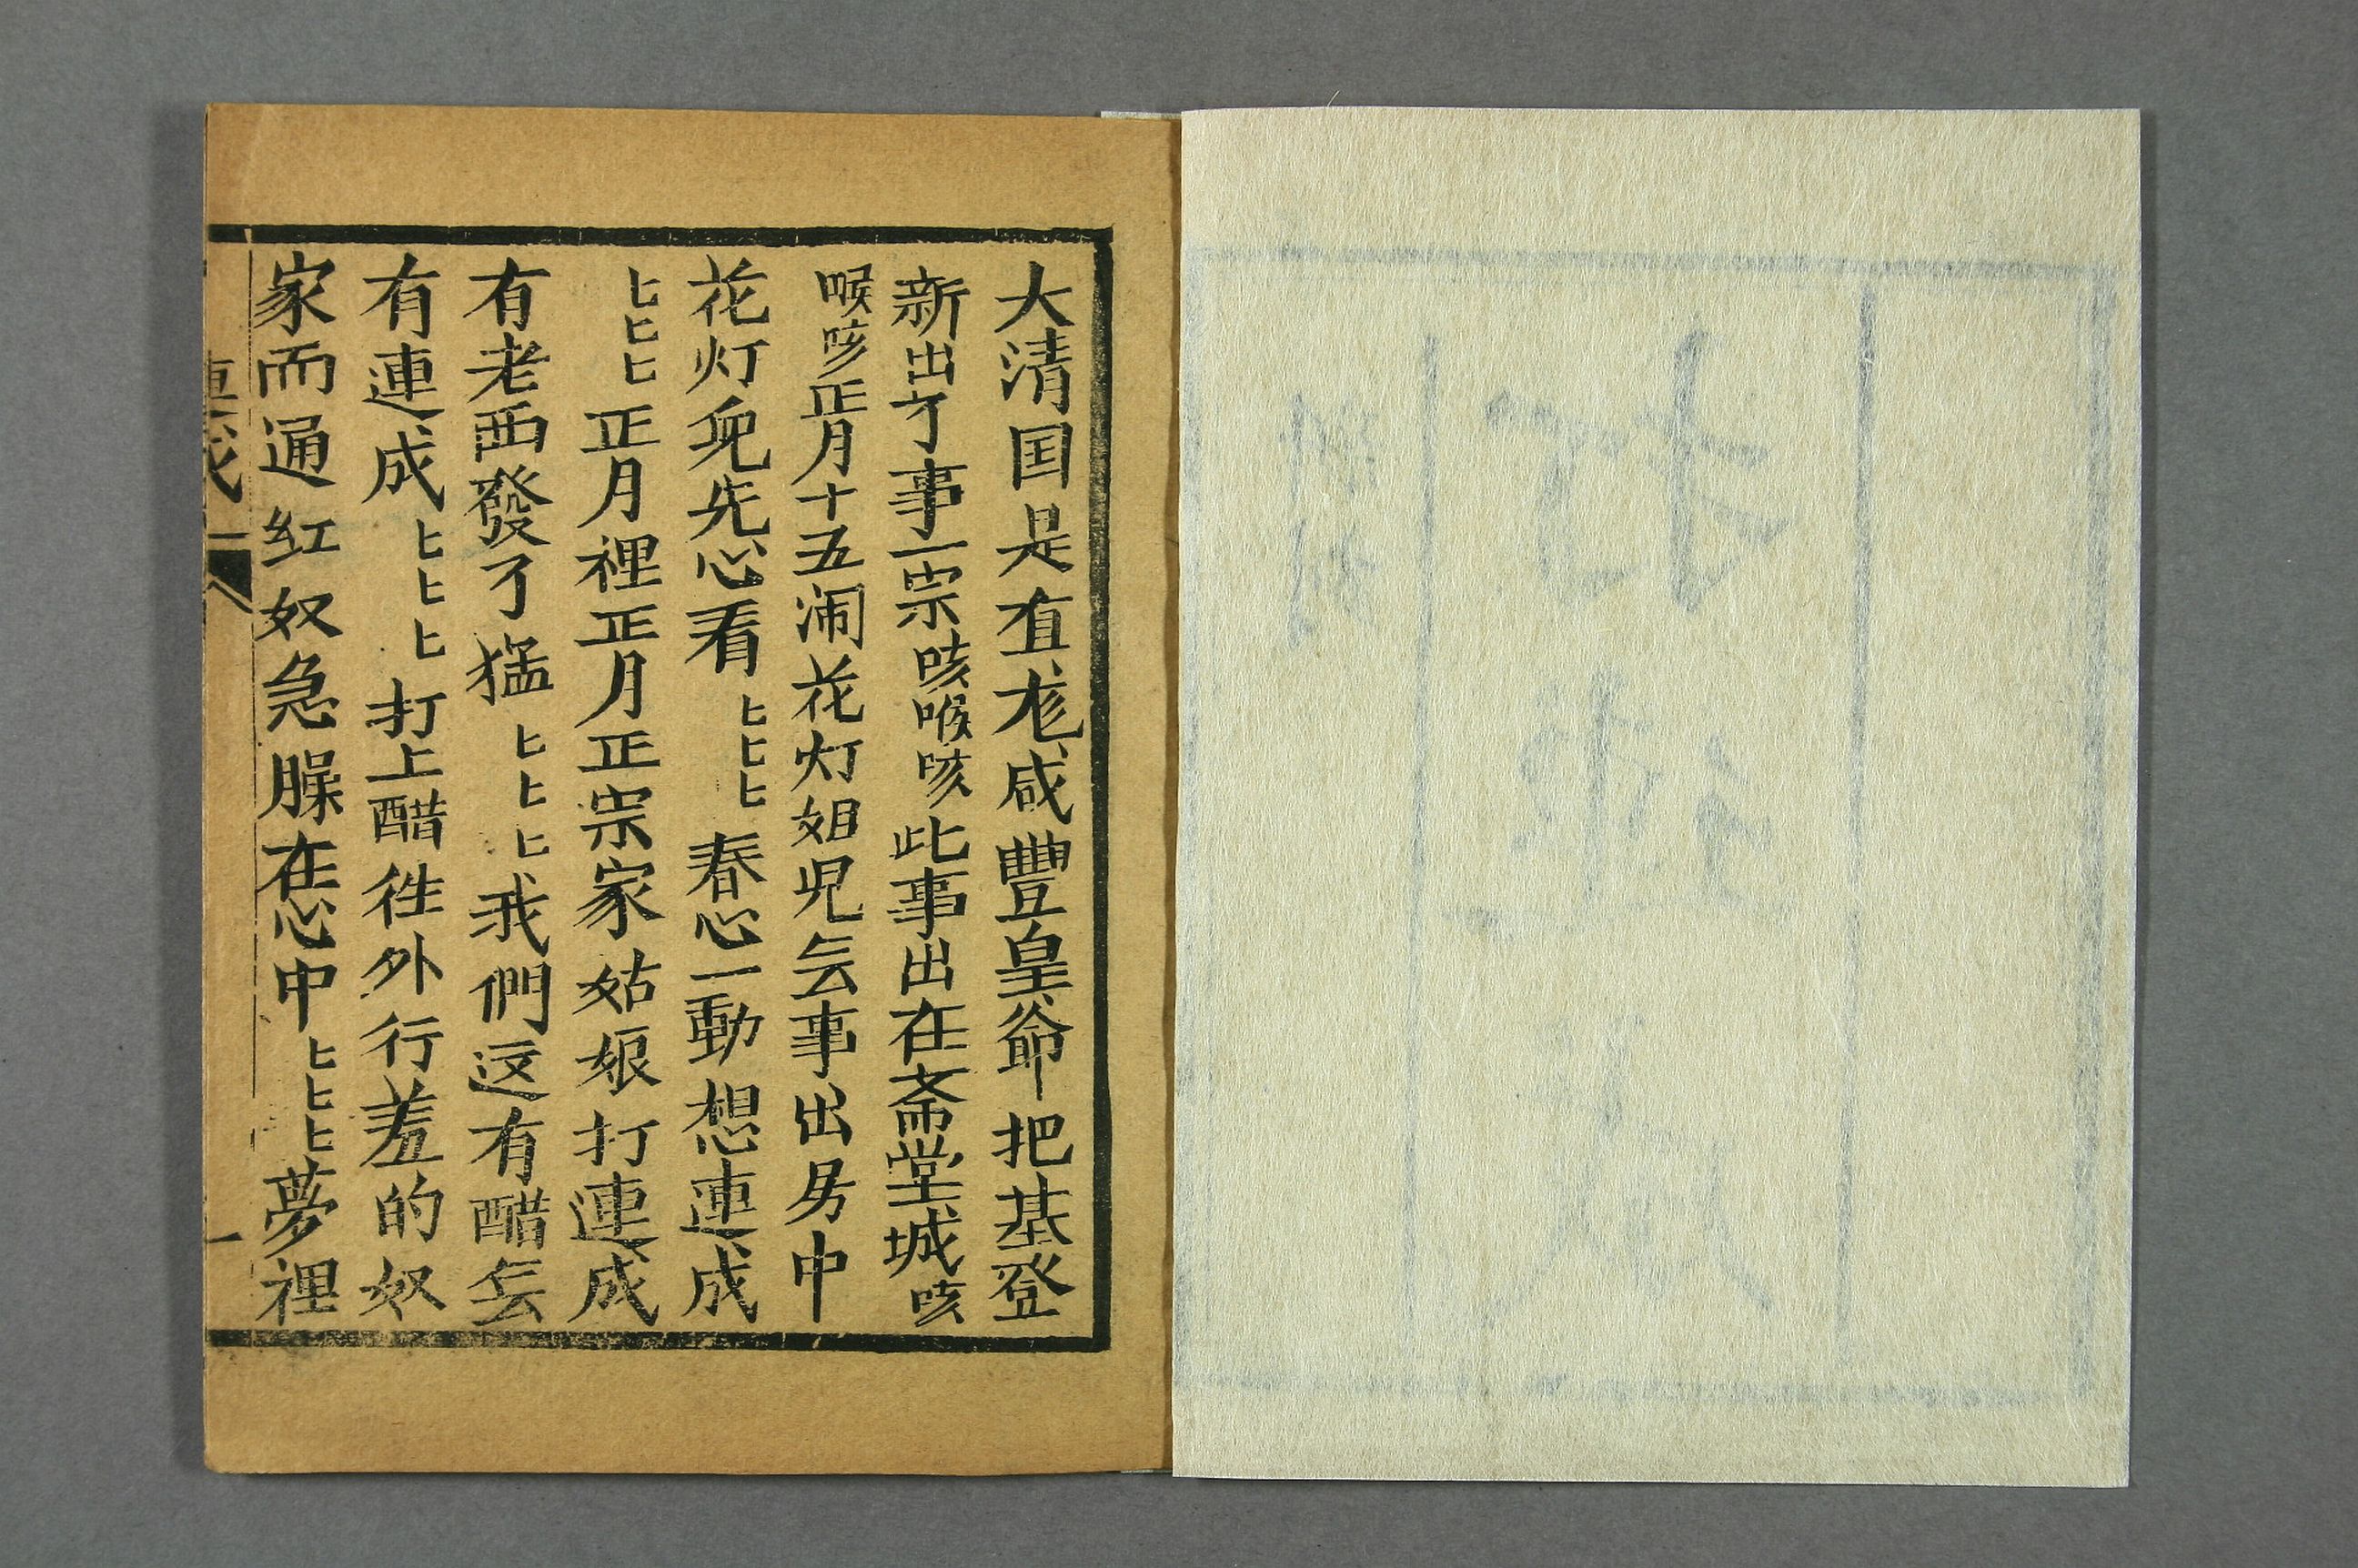 大清国是直尨咸豐皇爺把基登
新出了事一宗咳喉咳此事出在斋堂城咳
喉咳正月十五闹花灯姐児无事出房中
花灯児先心看〻〻〻春心一動想連成
〻〻〻正月裡正月正宗家姑娘打連成
有老西發了猛〻〻〻我們这有醋无
有連成〻〻〻打上醋徃外行羞的奴
家而通红奴急臊在心中〻〻〻夢裡
連成
一